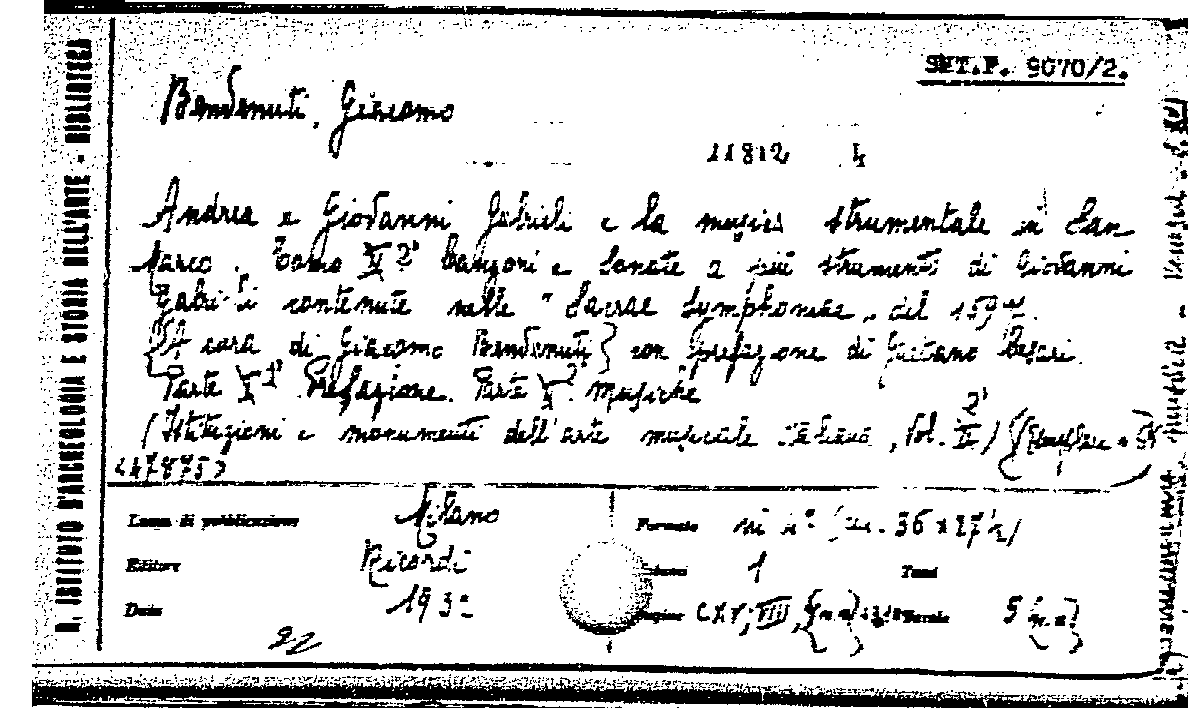 R. ISTITUTO D'ARCHEOLOGIA E STORIA DELL'ARTE - BIBLIOTECA
SET.F. 9070/2.
Benvenuti, Giacomo
11812 4
Andrea e Giovanni Gabrieli e la musica strumentale in San
Marco. Tomo II 2° Canzoni e Sonate a più strumenti di Giovanni
Gabrieli contenute nelle "Sacrae Symphoniae" del 1597.
[A cura di Giacomo Benvenuti] con prefazione di Gaetano Cesari.
Parte 1ª Prefazione. Parte 2ª Musiche
(Istituzioni e monumenti dell'arte musicale italiana, Vol. II 2°)
<47875>
Luogo di pubblicazione Milano
Editore Ricordi
Data 1932
Formato in 4° (cm. 36 x 27½)
Volumi 1 Tomi
Pagine CXV; VIII, [n.n] Tavole 5 [n.n]